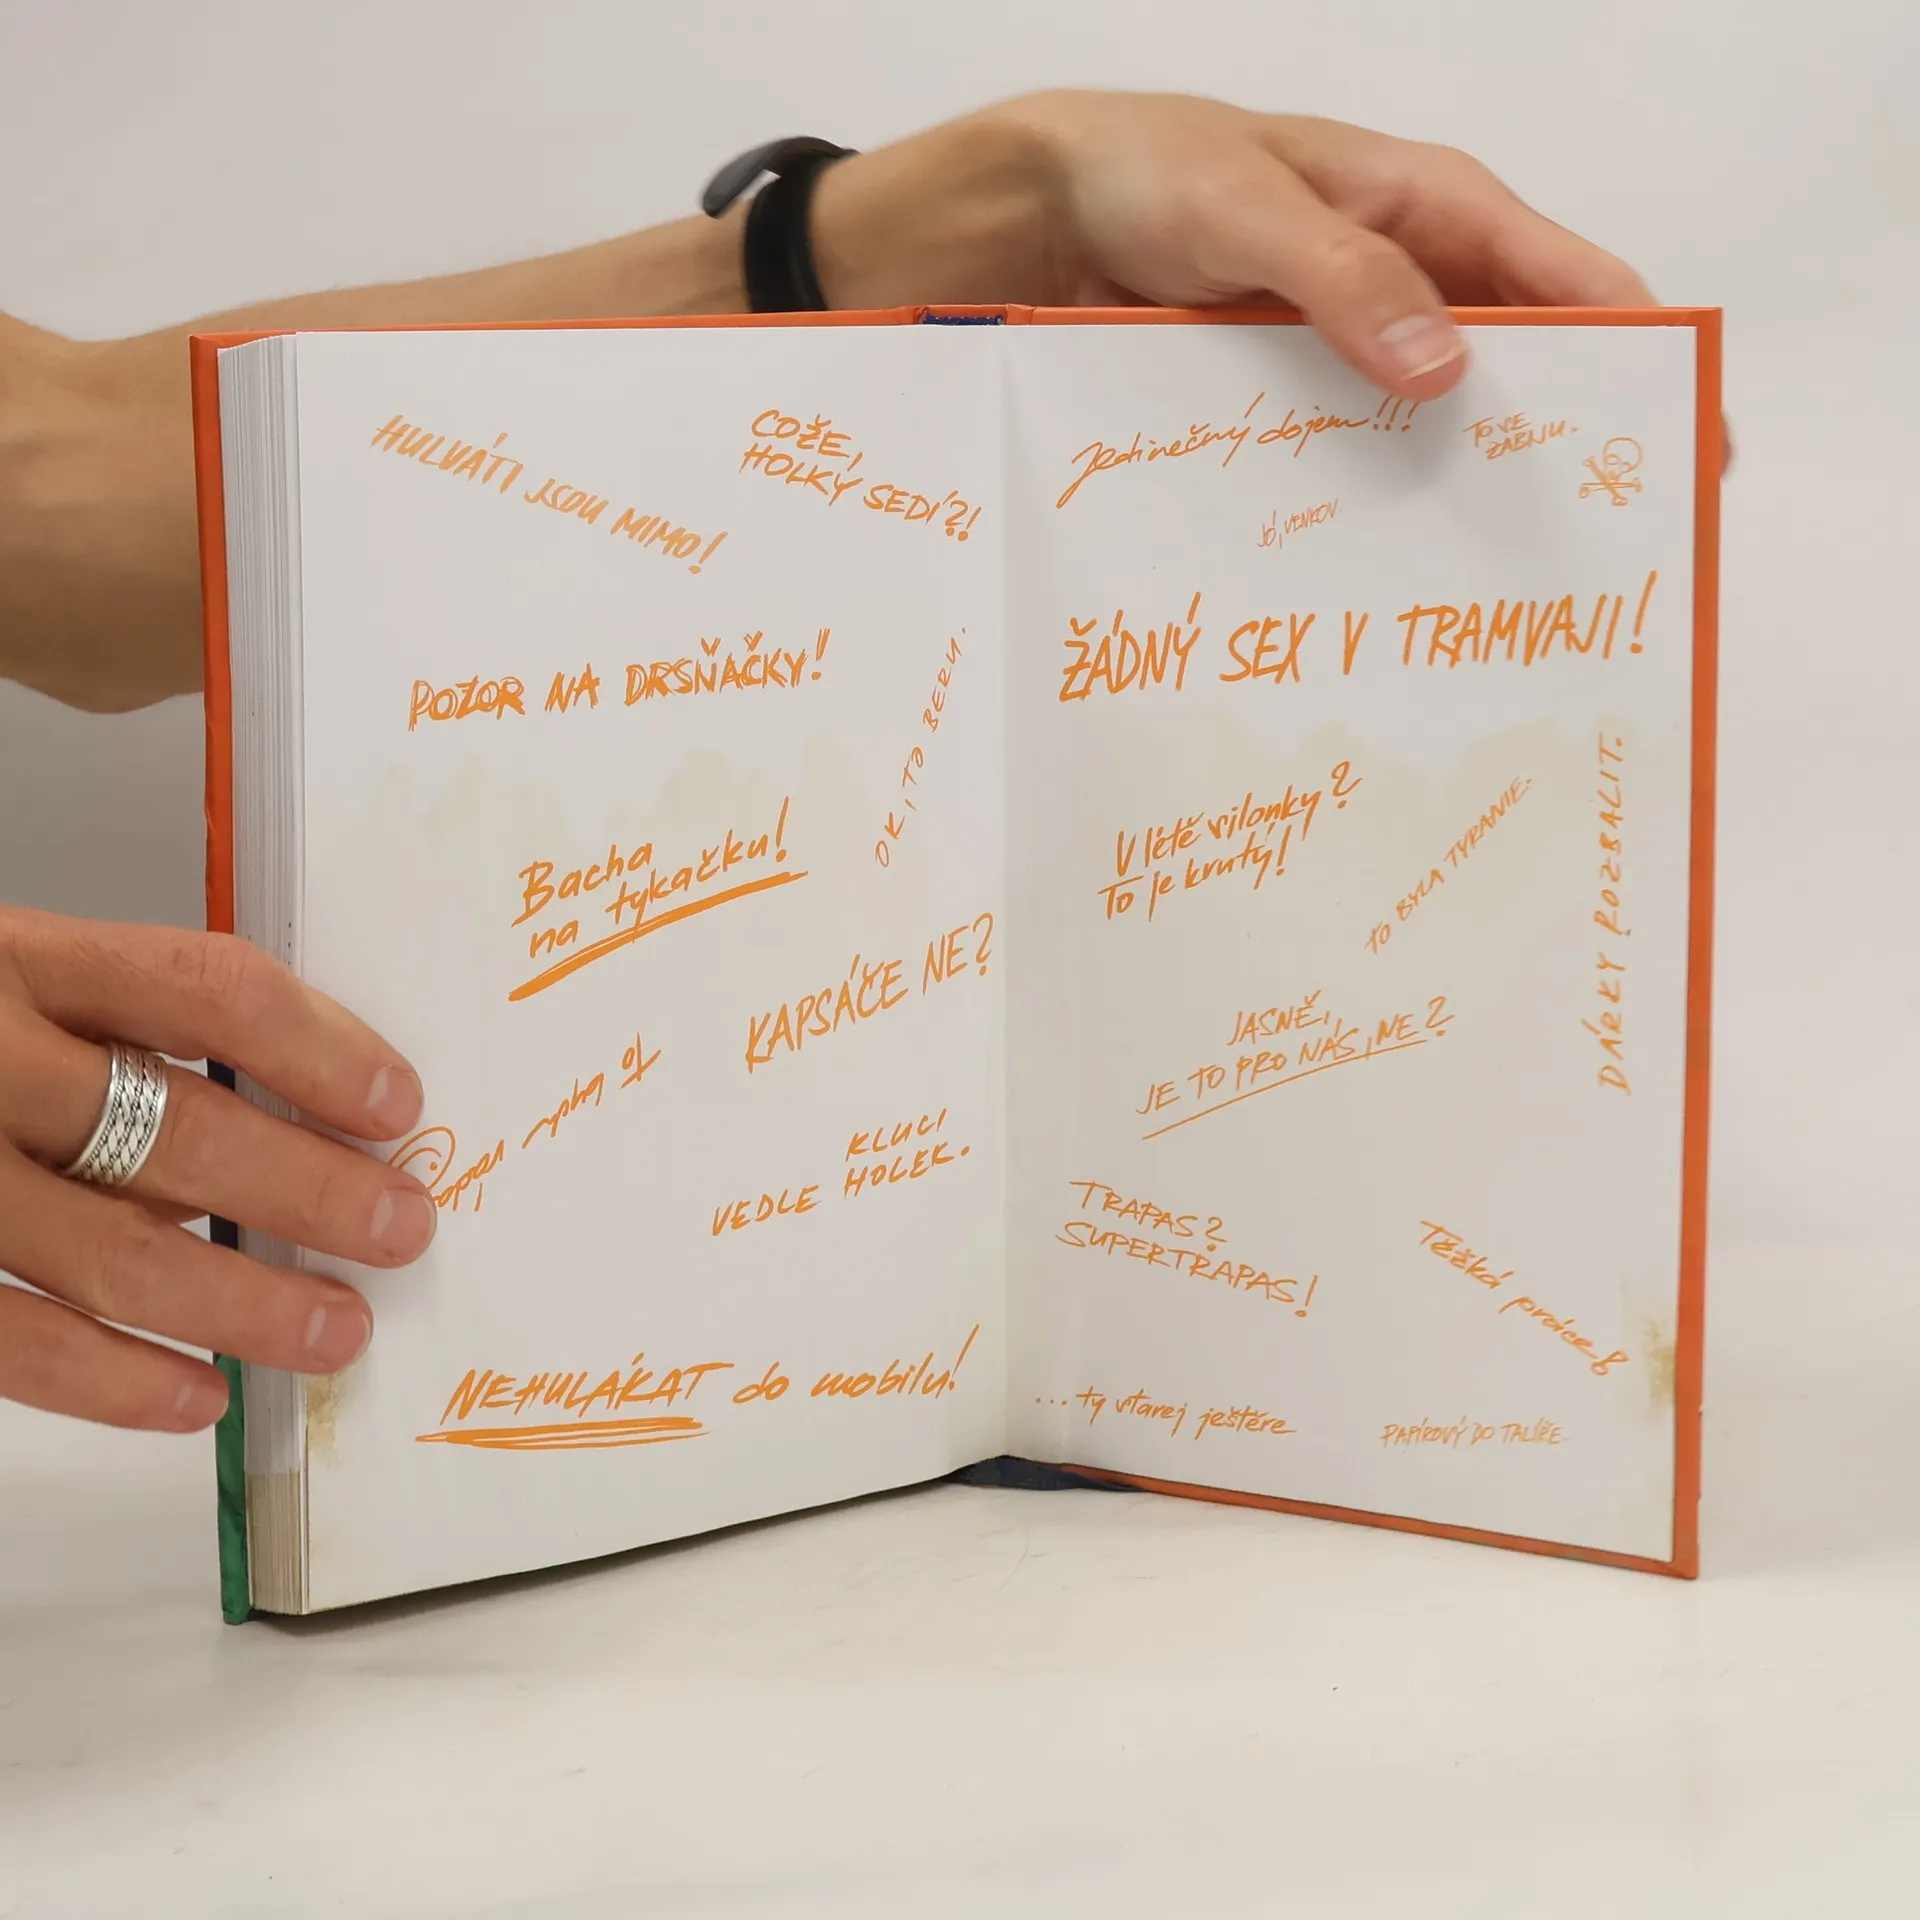 HULVÁTI JSOU MIMO!
COŽE,
HOLKY SEDÍ?!
POZOR NA DRSŇAČKY!
OK, TO BERU.
Bacha
na tykačku!
KAPSÁČE NE?
KLUCI
VEDLE HOLEK.
NEHULÁKAT do mobilu!
Jedinečný dojem!!!
TO VE
ŽABIJU.
JÓ, VENKOV.
ŽÁDNÝ SEX V TRAMVAJI!
V létě silonky?
To je krutý!
TO BYLA TYRANIE.
DÁRKY ROZBALIT.
JASNĚ,
JE TO PRO NÁS, NE?
TRAPAS?
SUPERTRAPAS!
Těžká práce
...ty starej ještěre
PAPÍROVÝ DO TALÍŘE.